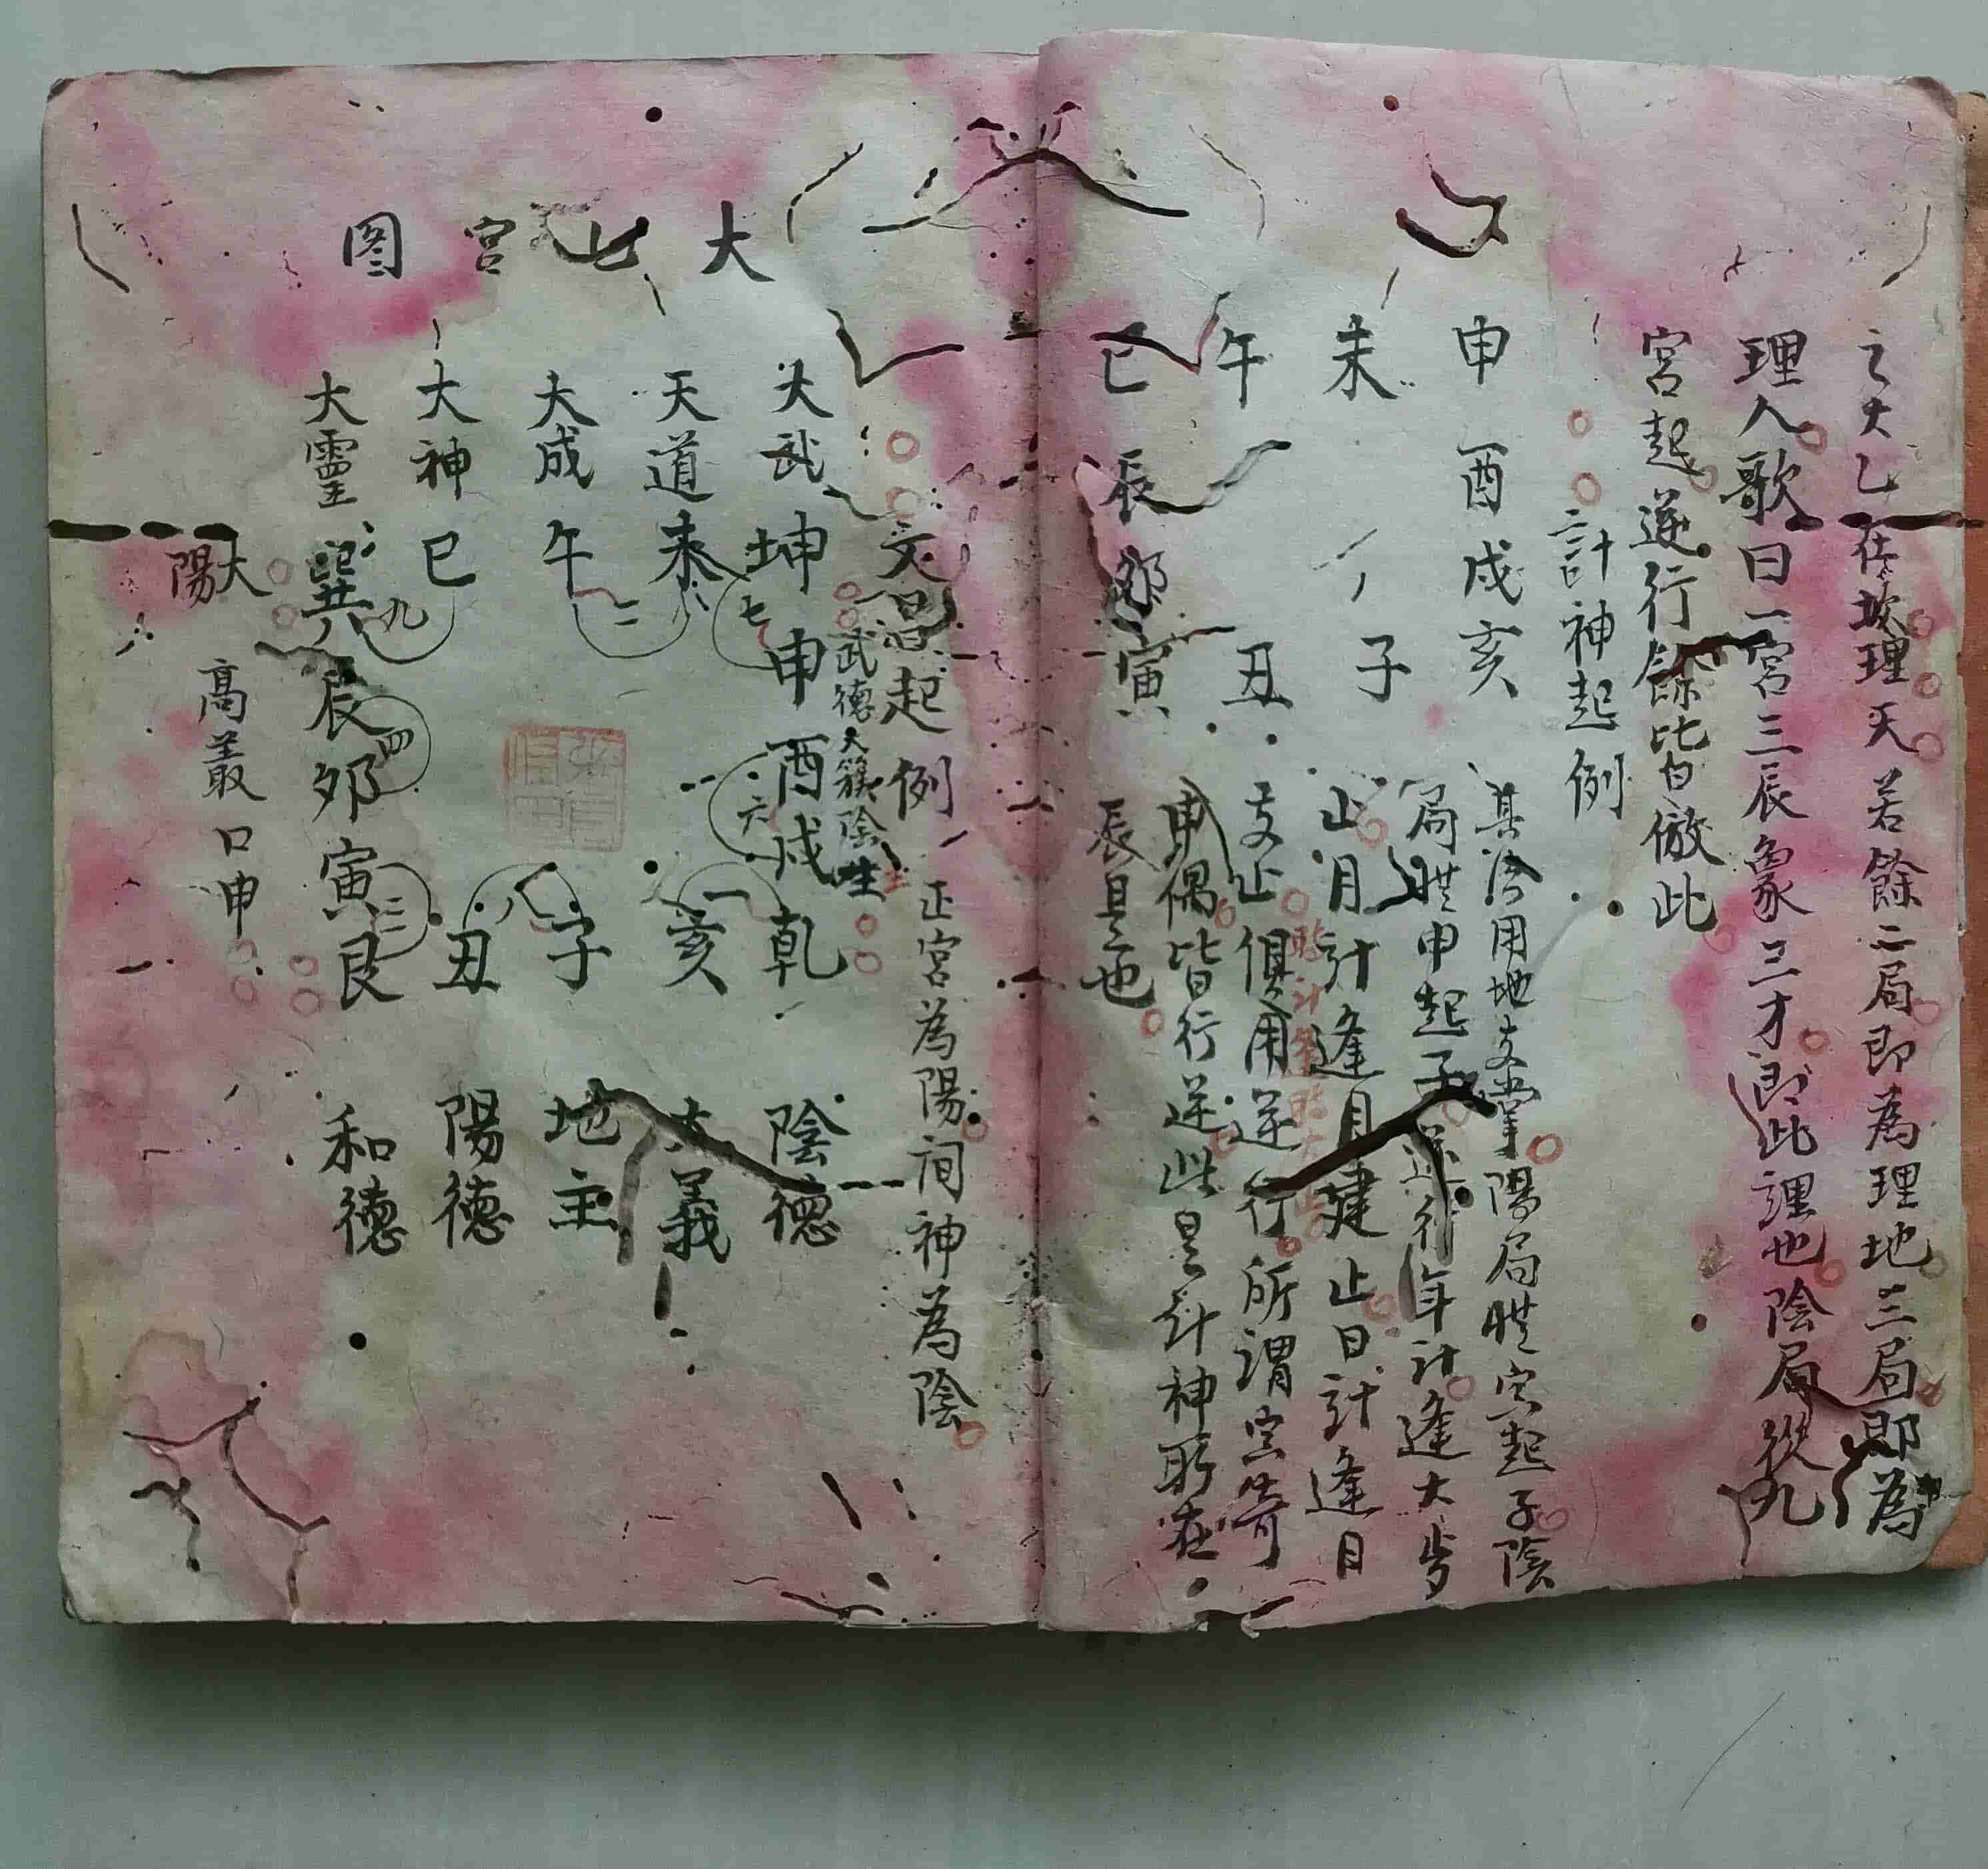 之大乙在坎理天若餘二局即為理地三局即為
理人歌曰一宮三辰象三才即此理也陰局從九
宮起逆行餘皆倣此
計神起例
申 酉戌亥
未 子
午 丑
巳 辰卯寅
其法用地支掌陽局從寅起子陰
局從申起子逆行年計逢大歲
止月計逢月建止日計逢日
支止俱用逆行所謂宮奇
申偶皆行逆此是計神所在
辰是也
文昌起例 正宮為陽间神為陰
武德大簇陰生
大七宮图
大武 坤七申酉六戌乾 陰德
天道 未 亥一 大義
大成 午二 子八 地主
大神 巳九 丑 陽德
大靈 巽辰四卯寅艮三 和德
大陽 高叢 口申